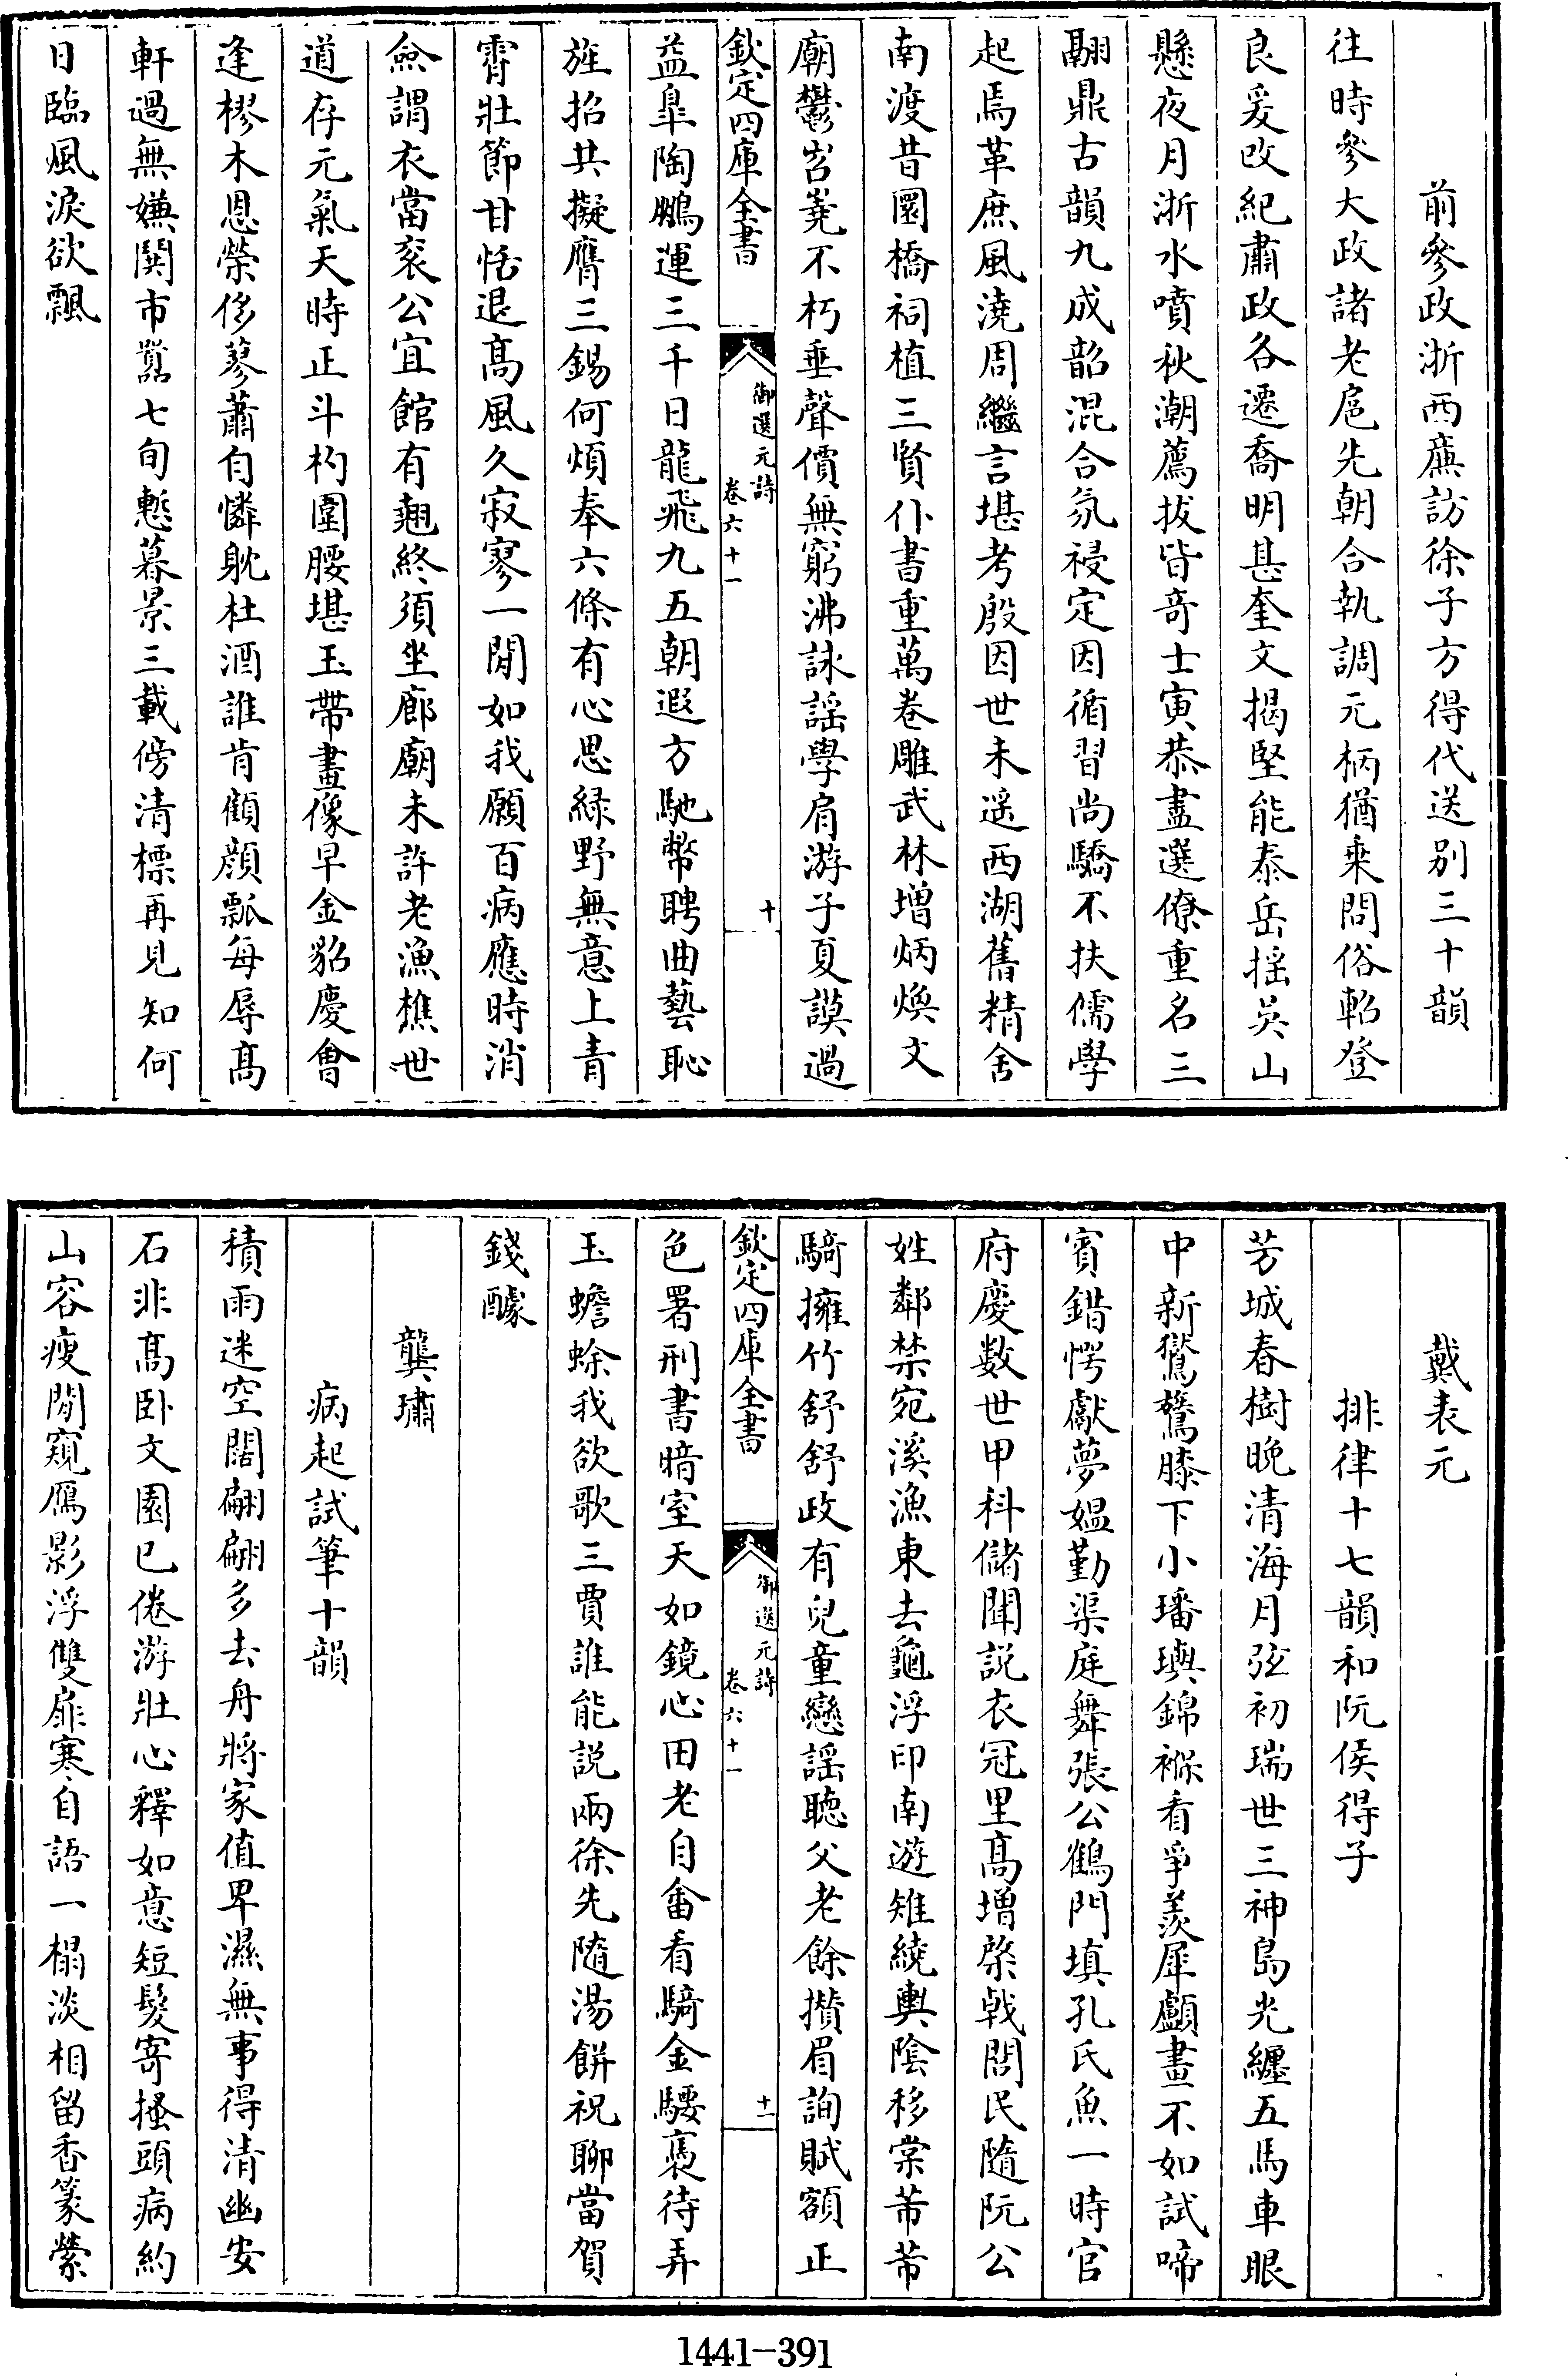 前參政浙西廉訪徐子方得代送别三十韻
往時參大政諸老扈先朝合執調元柄猶乗問俗軺登
良爰改紀肅政各遷喬明甚奎文揭堅能泰岳揺吳山
懸夜月浙水噴秋潮薦拔皆竒士寅恭盡選僚重名三
翮鼎古韻九成韶混合氛祲定因循習尚驕不扶儒學
起焉革庶風澆周繼言堪考殷因世未遥西湖舊精舍
南渡昔圜橋祠植三賢仆書重萬卷雕武林増炳煥文
廟鬱岧嶤不朽垂聲價無窮沸詠謡學肩游子夏謨過
欽定四庫全書
御選元詩
卷六十一
十
益臯陶鵬運三千日龍飛九五朝遐方馳幣聘曲藝恥
旌招共擬膺三錫何煩奉六條有心思緑野無意上青
霄壯節甘恬退髙風久寂寥一閒如我願百病應時消
僉謂衣當衮公宜館有翹終須坐廊廟未許老漁樵世
道存元氣天時正斗杓圍腰堪玉帶畫像早金貂慶會
逢樛木恩榮侈蓼蕭自憐躭杜酒誰肯顧顔瓢每辱髙
軒過無嫌闠市囂七旬慙暮景三載傍清標再見知何
日臨風淚欲飄
戴表元
排律十七韻和阮侯得子
芳城春樹晩清海月弦初瑞世三神島光纒五馬車眼
中新鸑鷟膝下小璠璵錦褓看爭羨犀顱畫不如試啼
賓錯愕獻夢媪勤渠庭舞張公鶴門填孔氏魚一時官
府慶數世甲科儲聞説衣冠里髙増棨戟閭民隨阮公
姓鄰禁宛溪漁東去龜浮印南遊雉繞輿陰移棠芾芾
騎擁竹舒舒政有兒童戀謡聴父老餘攅眉詢賦額正
欽定四庫全書
御選元詩
卷六十一
十一
色署刑書暗室天如鏡心田老自畬看騎金騕褭待弄
玉蟾蜍我欲歌三賈誰能説兩徐先隨湯餅祝聊當賀
錢醵
龔璛
病起試筆十韻
積雨迷空闊翩翩多去舟將家值卑濕無事得清幽安
石非髙卧文園已倦游壯心釋如意短髮寄搔頭病約
山容瘦閒窺鴈影浮雙扉寒自語一榻淡相留香篆縈
1441-391